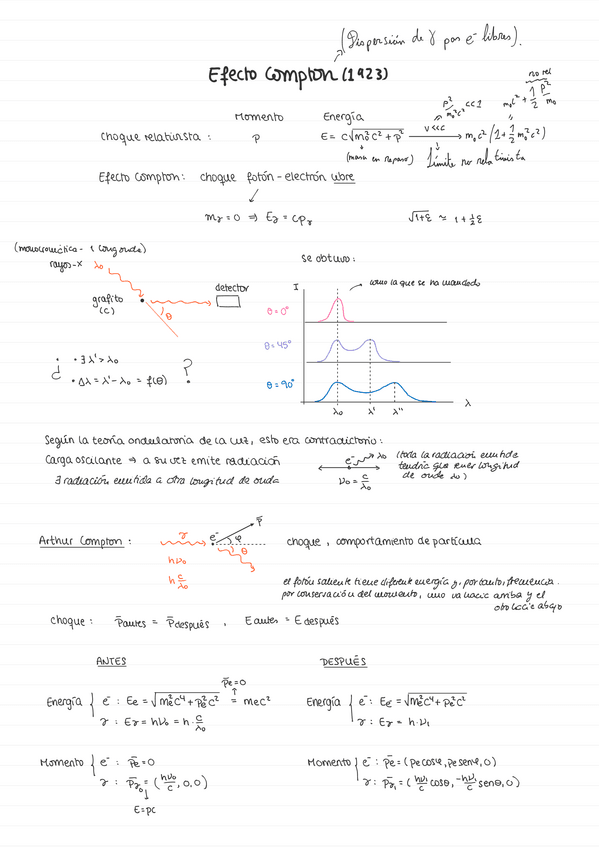 (Dispersión de γ por e⁻ libres).
Efecto Compton (1923)
no rel
Momento Energía p²/m₀²c² <<1 m₀c² + 1/2 p²/m₀
choque relativista : p E = c√(m₀²c² + p²) v<<c → m₀c² (1+ 1/2 m₀²c²)
(masa en reposo) límite no relativista
Efecto Compton: choque fotón - electrón libre
m_γ = 0 ⇒ E_γ = cp_γ √(1+ε) ≈ 1 + 1/2 ε
(monocromática - 1 long onda)
rayos-x λ₀
se obtuvo:
grafito
(C)
θ
detector
I
como la que se ha mandado
θ = 0°
θ = 45°
θ = 90°
λ₀ λ' λ'' λ
¿ • ∃ λ' > λ₀
• Δλ = λ' - λ₀ = f(θ) ?
Según la teoría ondulatoria de la luz, esto era contradictorio :
Carga oscilante ⇒ a su vez emite radiación
∃ radiación emitida a otra longitud de onda
e⁻ λ₀
ν₀ = c/λ₀
(toda la radiación emitida
tendría que tener longitud
de onda λ₀)
Arthur Compton : γ e⁻ p̄ φ θ choque , comportamiento de partícula
hν₀
h c/λ₀
el fotón saliente tiene diferente energía y, por tanto, frecuencia.
por conservación del momento, uno va hacia arriba y el
otro hacia abajo
choque : p̄antes = p̄después , E antes = E después
ANTES DESPUÉS
p̄e=0
Energía { e⁻ : Ee = √(me²c⁴ + pe²c²) = mec² Energía { e⁻ : Ee' = √(me²c⁴ + pe²c²)
γ : Eγ = hν₀ = h · c/λ₀ γ : Eγ = h · ν₁
Momento { e⁻ : p̄e = 0 Momento { e⁻ : p̄e = (pe cosφ, pe senφ, 0)
γ : p̄γ₀ = (hν₀/c, 0, 0) γ : p̄γ₁ = (hν₁/c cosθ, -hν₁/c senθ, 0)
E=pc